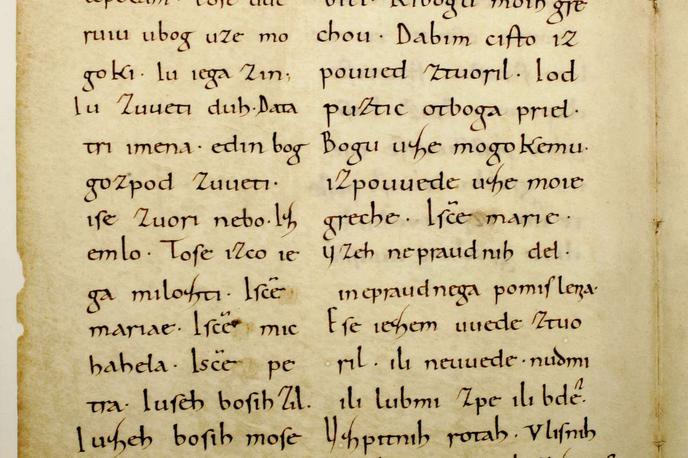 ruiu ubog uze mo
goki. Iu iega zin,
Iu zuueti duh. Data
tri imena. edin bog
gozpod zuueti.
ise zuori nebo. Iz
emlo. Tose izco ie
ga milozti. Isce
mariae. Isce mic
hahela. Isce pe
tra. Iuseh bosih zil.
Iuzeh bosih mose
chou. Dabim cisto iz
pouued ztuoril. Iod
puztic otboga priel.
Bogu uze mogokemu.
izpouuede uze moie
greche. Isce marie.
uzeh nepraudnih del.
inepraudnega pomislena.
Ese iezem uuede ztuo
ril. ili neuuede. nudmi
ili lubmi zpe ili bde.
Uzpitnih rotah. Vlisnih